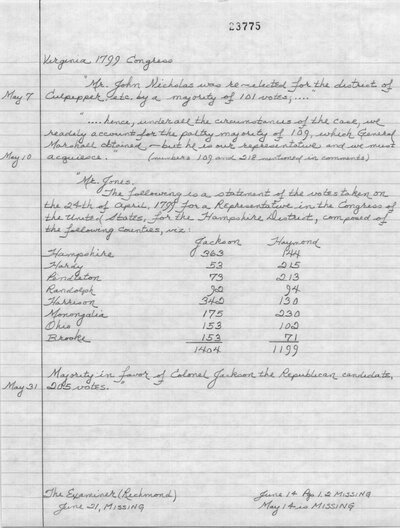 23775
Virginia 1799 Congress
"Mr. John Nicholas was re-elected for the district of
May 7 Culpepper, etc. by a majority of 101 votes, ...."
".... hence, under all the circumstances of the case, we
readily account for the paltry majority of 109, which General
Marshall obtained - but he is our representative and we must
May 10 acquiesce." (numbers 109 and 218 mentioned in comments)
"Mr. Jones,
The following is a statement of the votes taken on
the 24th of April, 1799 for a Representative in the Congress of
the United States, for the Hampshire District, composed of
the following counties, viz:
Jackson Haymond
Hampshire 363 144
Hardy 53 215
Pendleton 73 213
Randolph 92 94
Harrison 342 130
Monongalia 175 230
Ohio 153 102
Brooke 153 71
1404 1199
Majority in favor of Colonel Jackson the Republican candidate,
May 31 205 votes."
The Examiner (Richmond) June 14 Pp 1,2 MISSING
June 21, MISSING May 14 is MISSING